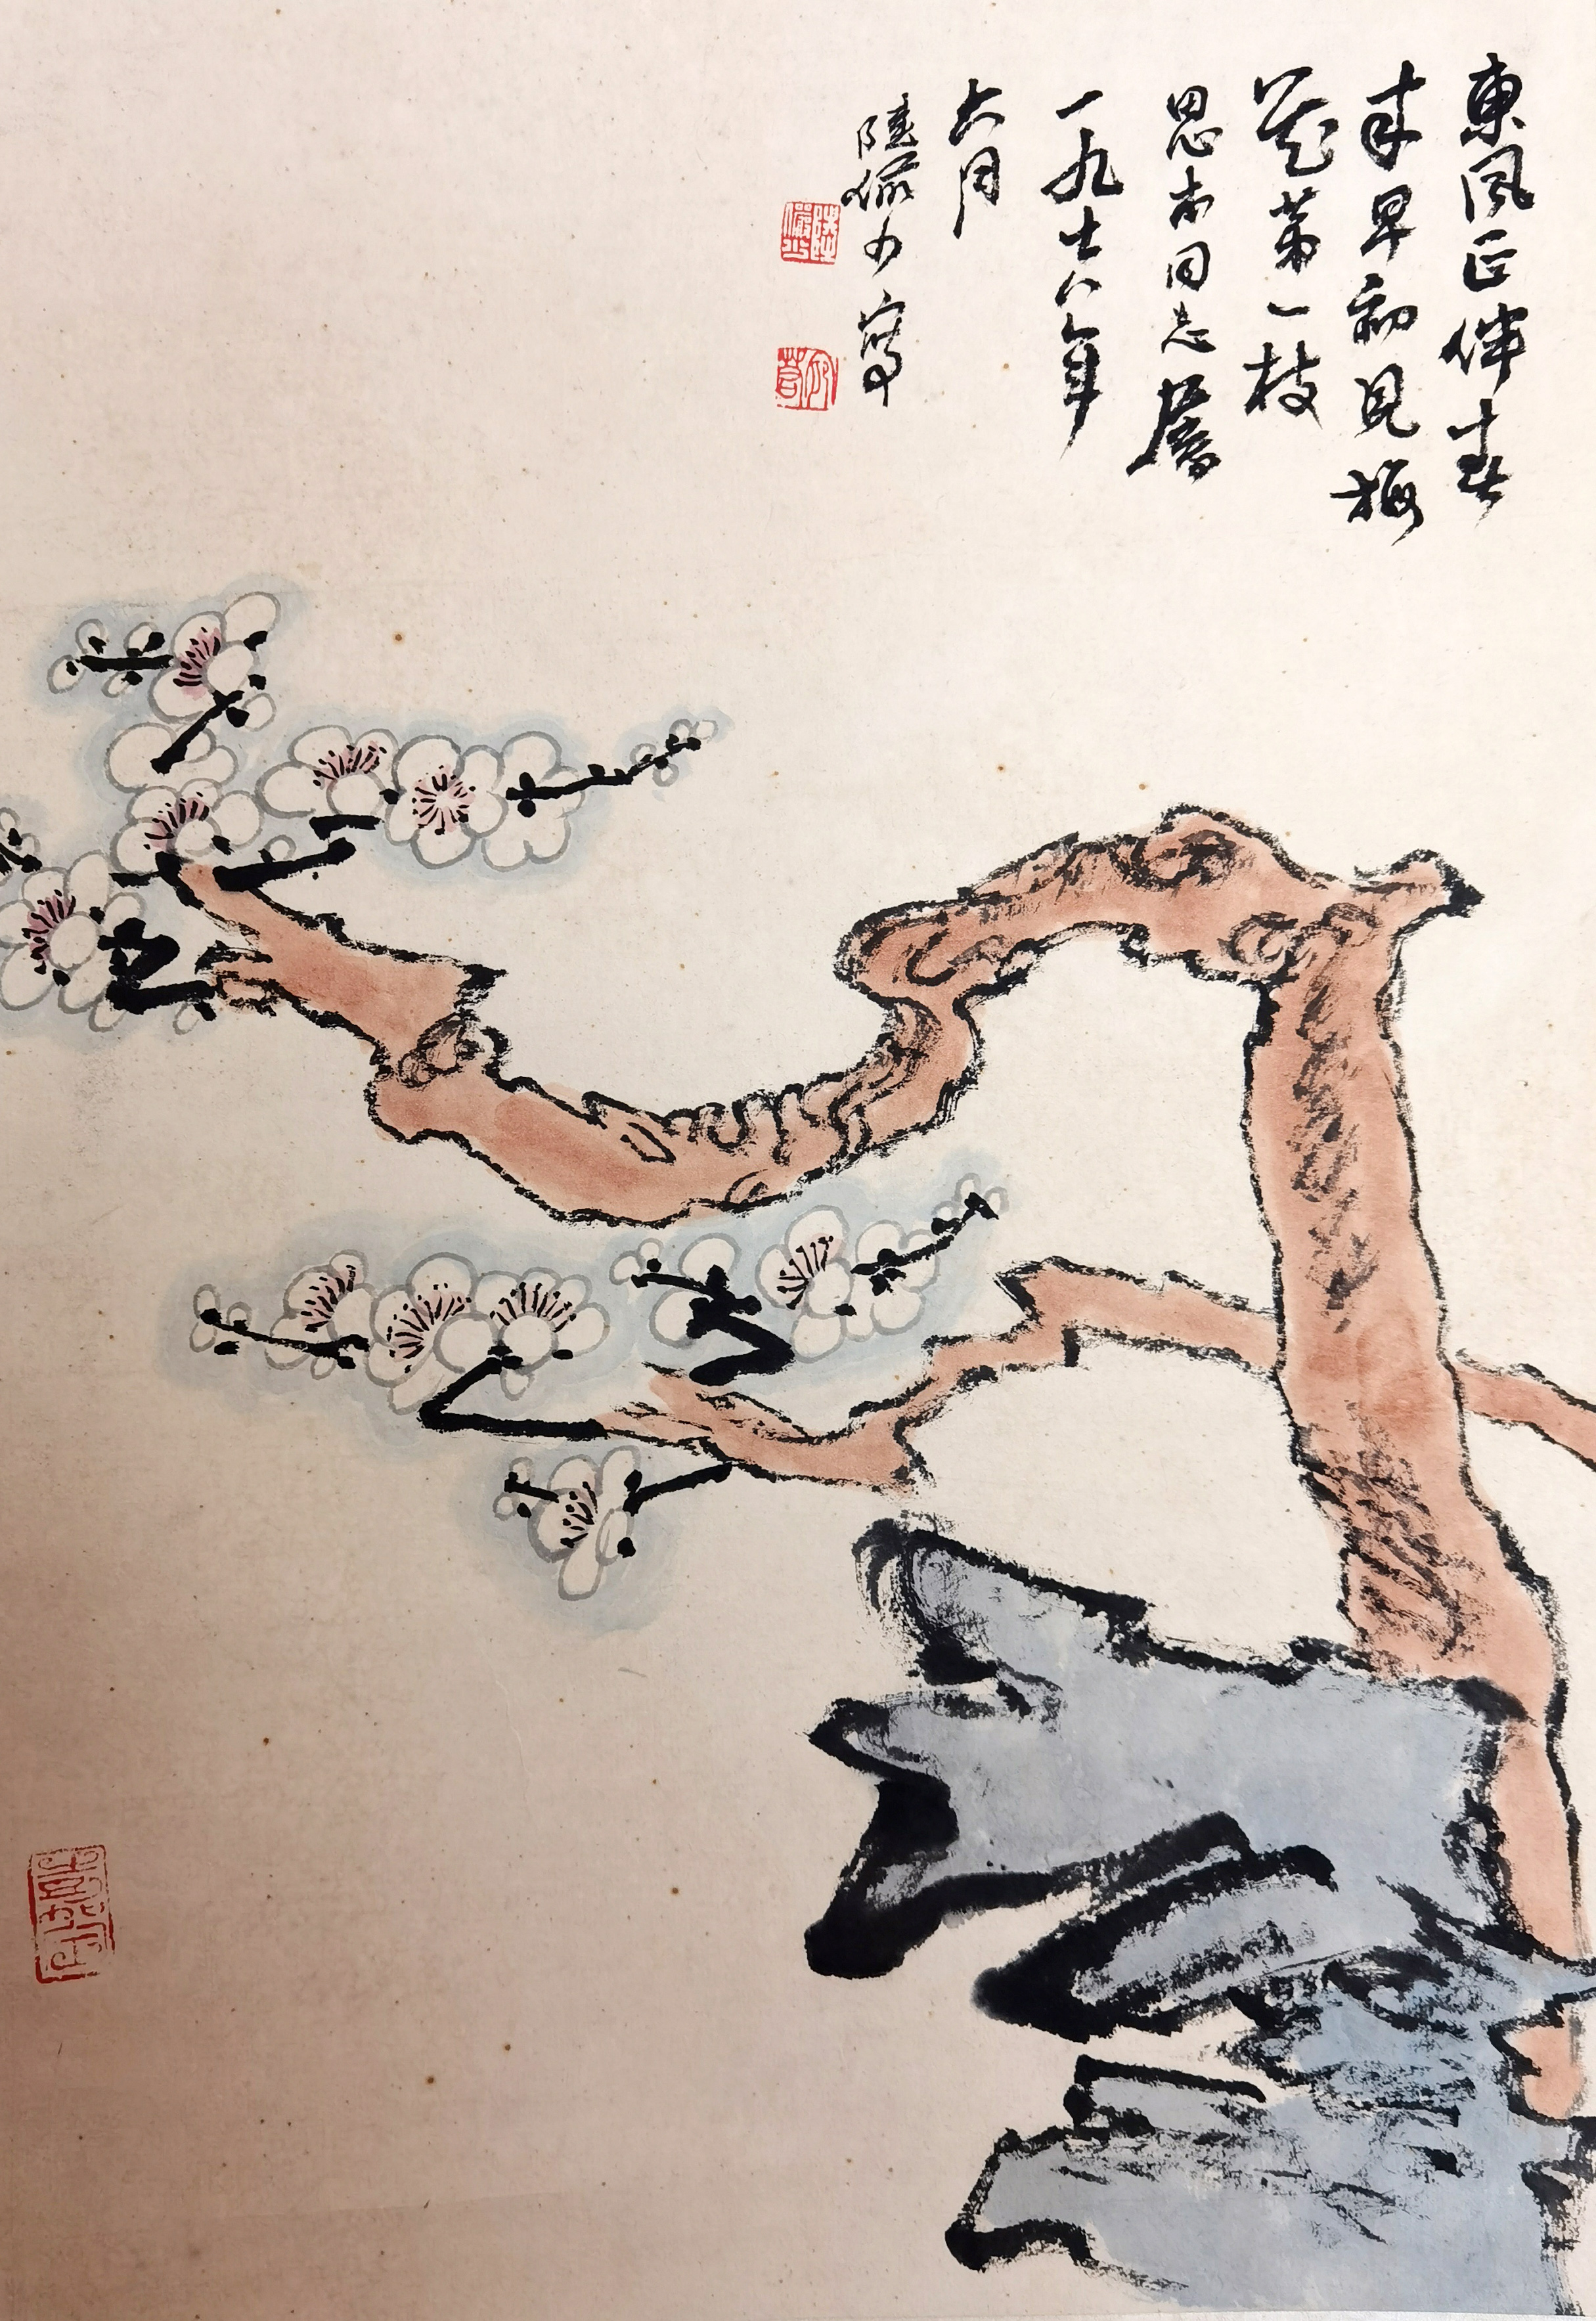 東風正伴春
來早初見梅
花第一枝
思本同志屬
一九七八年
六月
陸儼少寫
陸儼少